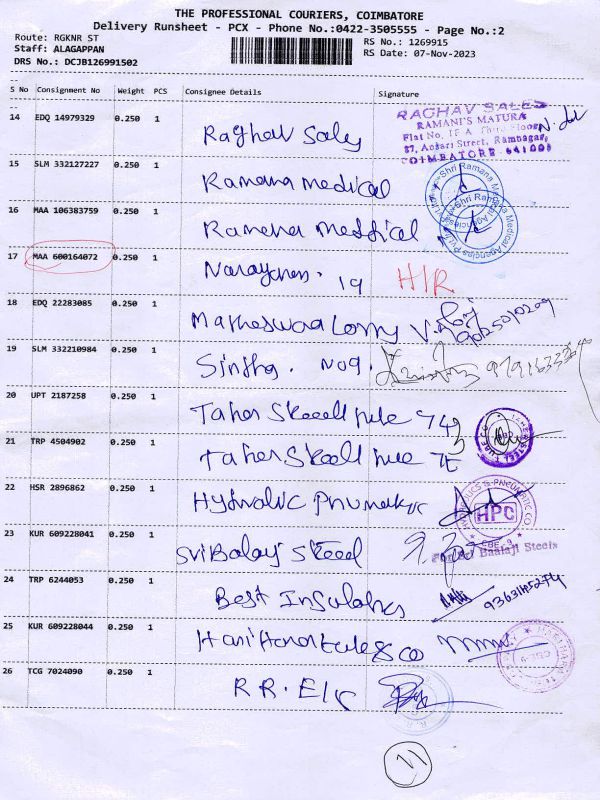 THE PROFESSIONAL COURIERS, COIMBATORE
Delivery Runsheet - PCX - Phone No.:0422-3505555 - Page No.:2
Route: RGKNR ST
Staff: ALAGAPPAN
DRS No.: DCJB126991502
RS No.: 1269915
RS Date: 07-Nov-2023
S No Consignment No Weight PCS Consignee Details Signature
14 EDQ 14979329 0.250 1 Raghav Sales
RAGHAV SALES
RAMANI'S MATURA
Flat No. 1F A Third Floor
87, Ansari Street, Ramnagar,
COIMBATORE - 641009
15 SLM 332127227 0.250 1 Ramana Medical
16 MAA 106383759 0.250 1 Ramana Medical
17 MAA 600164072 0.250 1 Narayanan. 19 H/R
18 EDQ 22283085 0.250 1 Matheswaa Lorry
19 SLM 332210984 0.250 1 Sintha. No9.
20 UPT 2187258 0.250 1 Taher
21 TRP 4504902 0.250 1 Taher
22 HSR 2896862 0.250 1 Hydralic Pnumatic
HPC
23 KUR 609228041 0.250 1 Sri Balaji Steel
For Sri Baalaji Steels
24 TRP 6244053 0.250 1 Best Insulates
25 KUR 609228044 0.250 1 & co
26 TCG 7024090 0.250 1 R.R. Elc
11